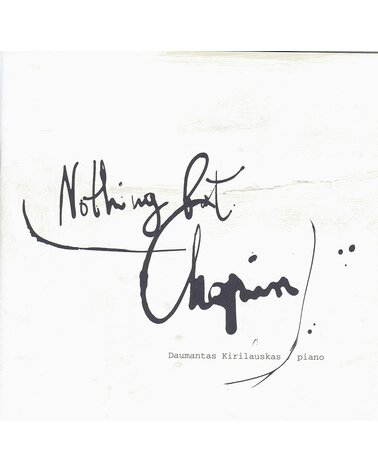 Nothing but
Chopin
Daumantas Kirilauskas piano